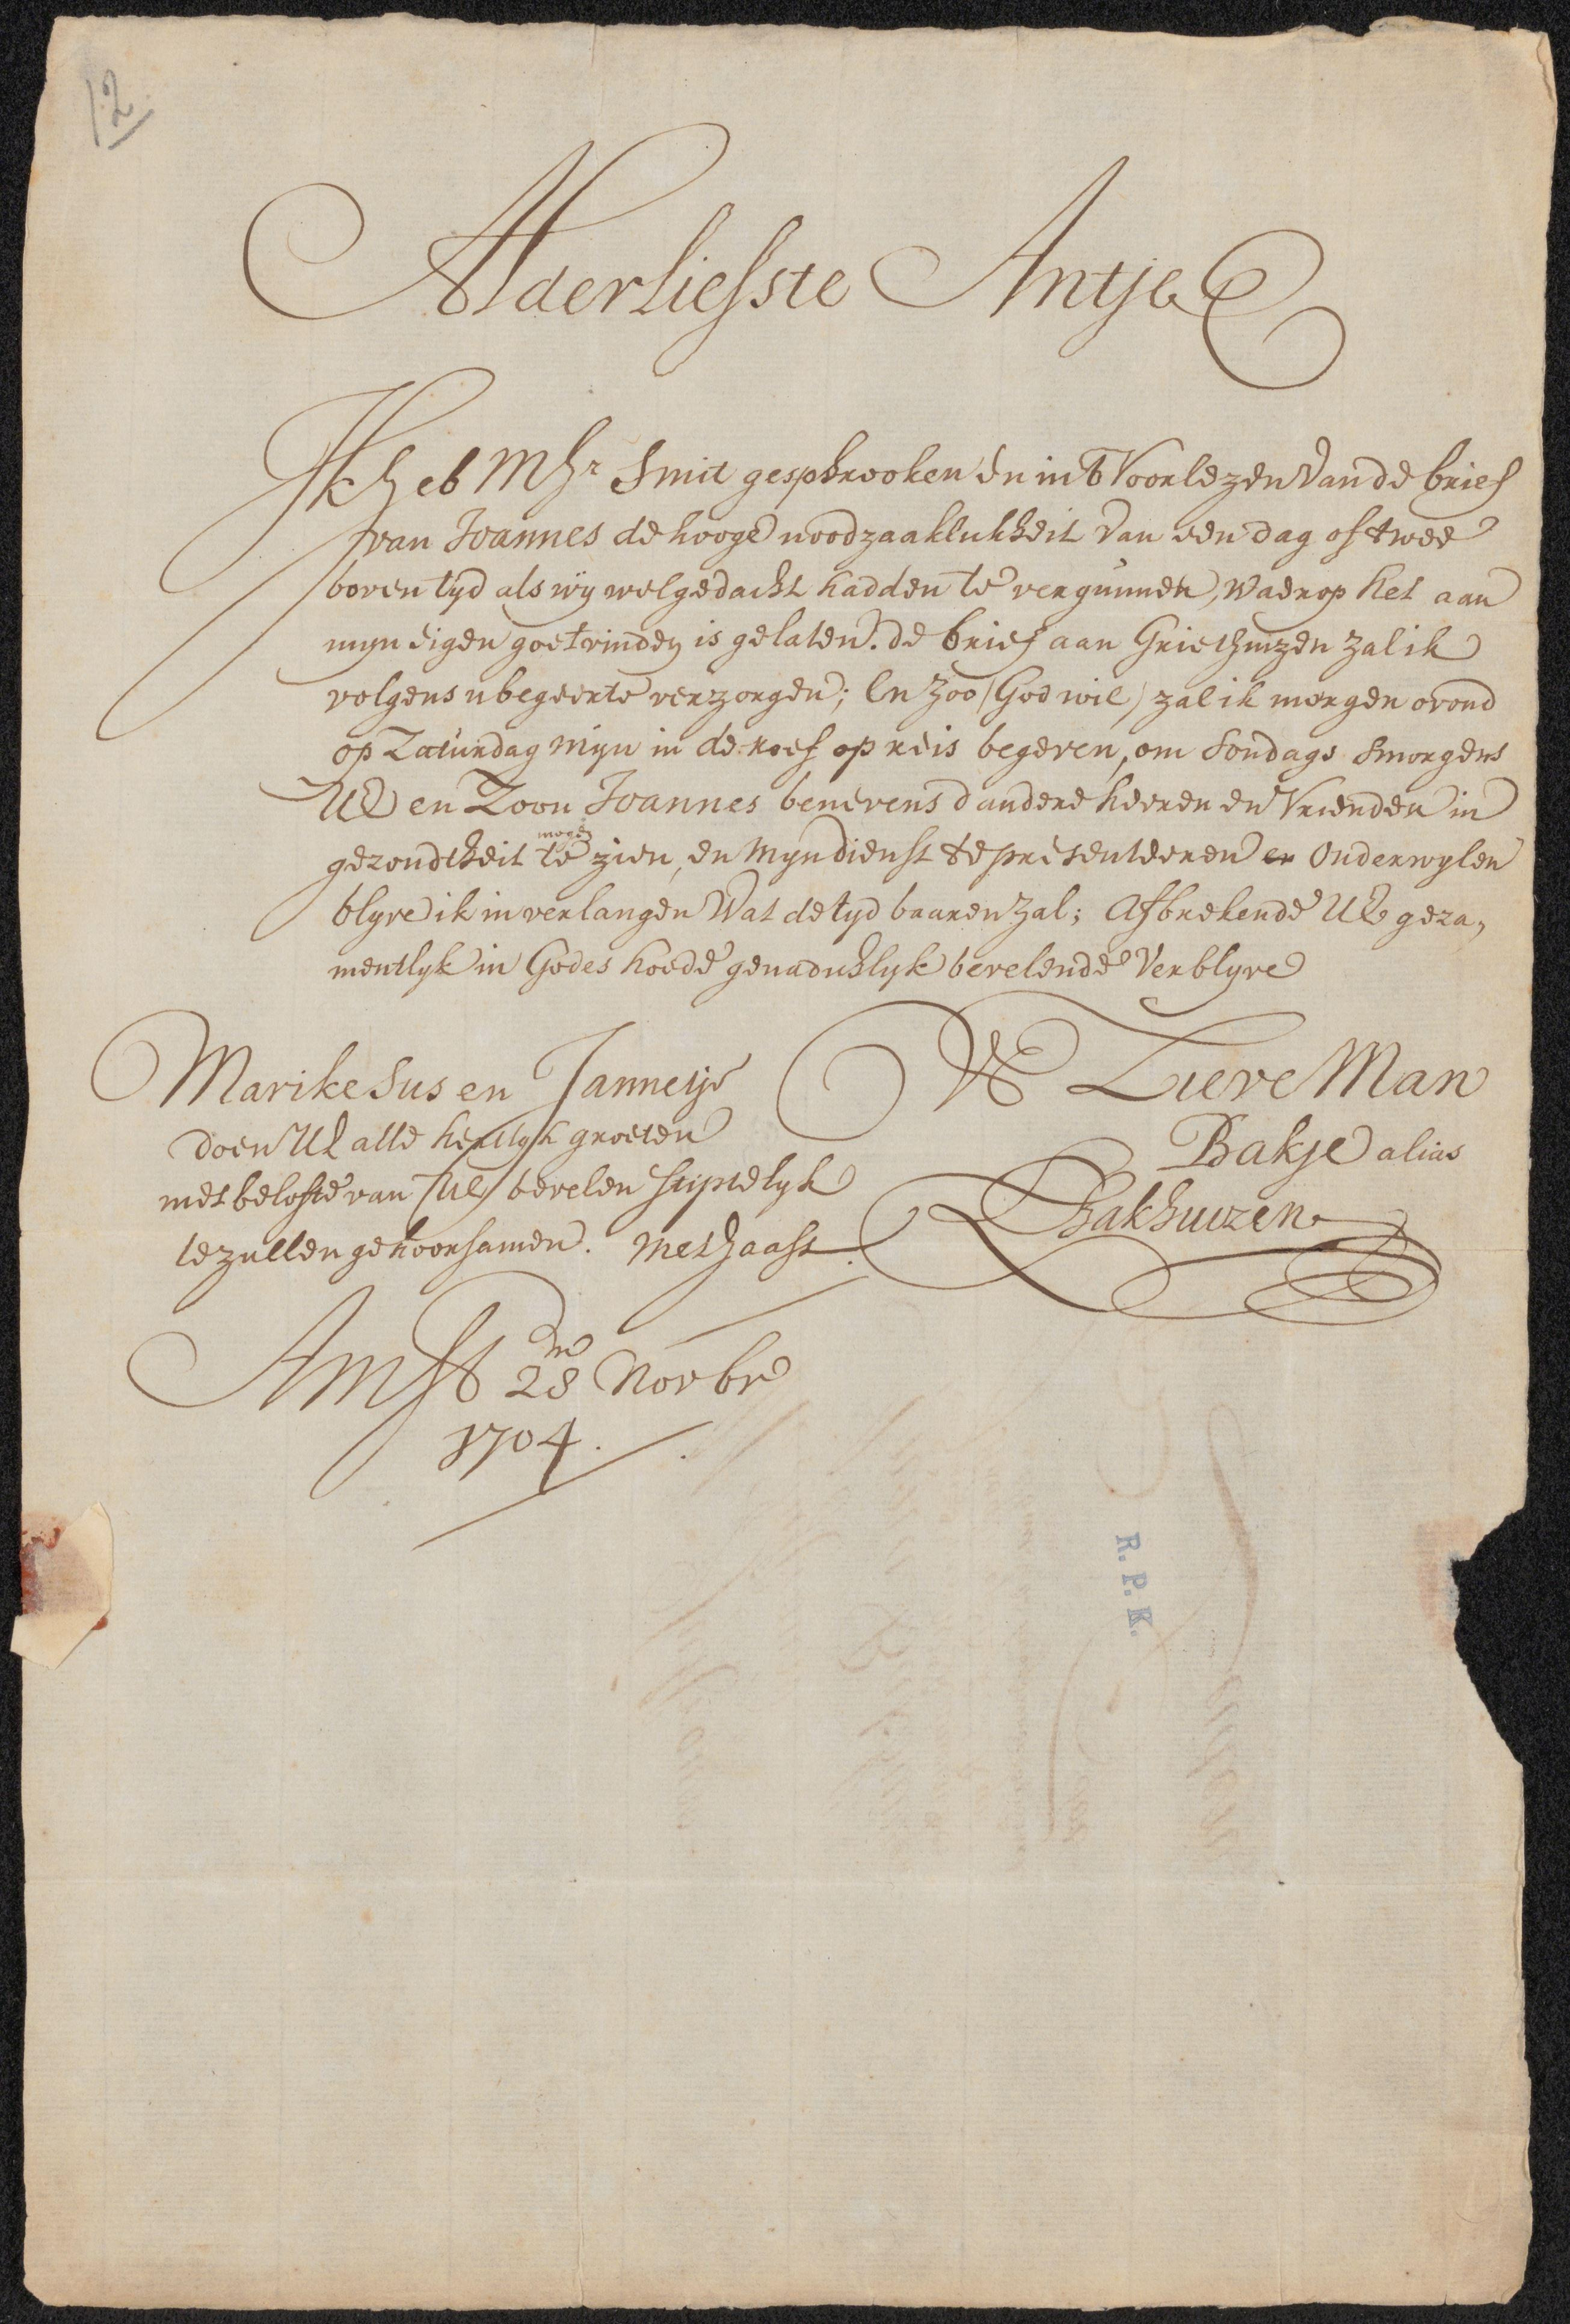 12
Alderliefste Antje
Ik heb Mhr Smit gesprooken en int voorlezen van de brief
van Joannes de hooge noodzaaklykheit van een dag of twee
boven tyd als wÿ wel gedacht hadden te vergunnen, waerop het aan
myn eigen goetvinden is gelaten. de brief aan Griethuizen zal ik
volgens u begeerte verzorgen; En zoo (God wil) zal ik morgen avond
op Zaturdag myn in de roef op reis begeven, om Sondags Smorgens
UL en Zoon Joannes benevens d andere heeren en Vrienden in
gezondtheit te mogen zien, en Myn dienst te presenteeren en Onderwylen
blyve ik in verlangen Wat de tyd baaren zal; Afbrekende UL geza,
mentlyk in Godes hoede genadichlyk bevelende Verblyve
U Lieve Man
Bakje alias
Bakhuizen
Marike Sus en Jannetje
doen UL alle hertlyk groeten
met belofte van (UL) bevelen stiptelyk
te zullen gehoorsamen. met haast.
Amst 28 Novbr
1704.
R. P. K.